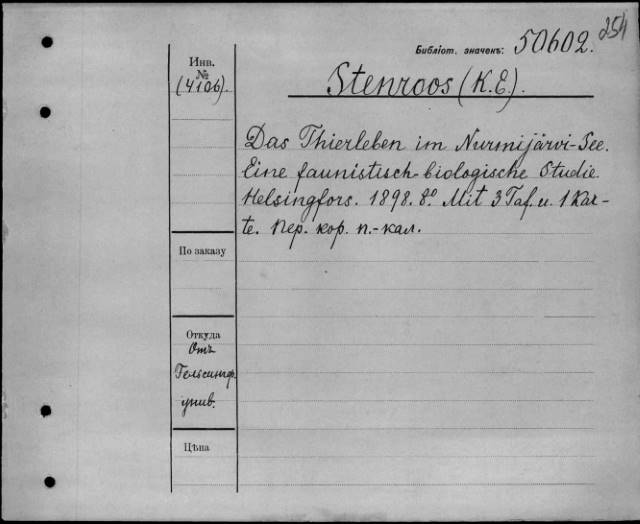 254
Библіот. значекъ: 50602.
Инв.
№
(4106).
Stenroos (K. E.).
Das Thierleben im Nurmijärvi-See.
Eine faunistisch-biologische Studie.
Helsingfors. 1898. 8º. Mit 3 Taf. u. 1 Kar-
te. Пер. кор. п.-кал.
По заказу
Откуда
Отъ
Гельсингф.
унив.
Цѣна